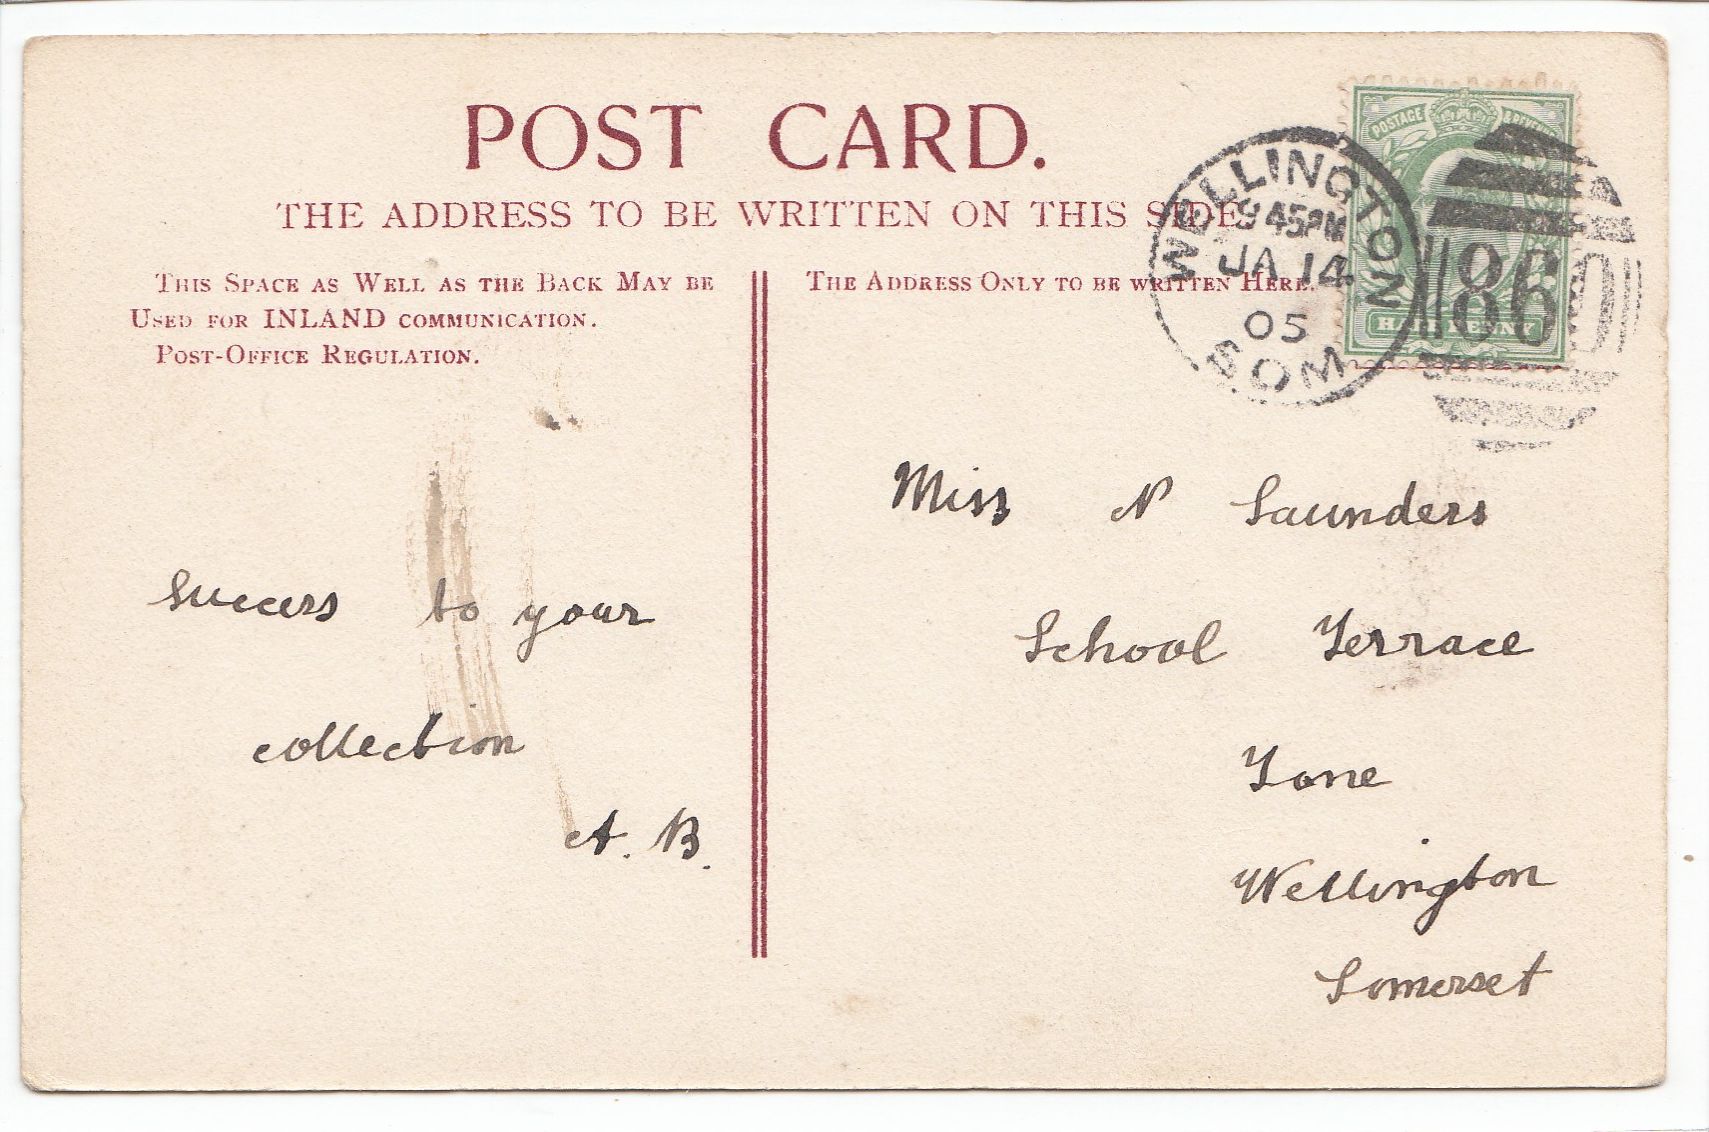 POST CARD.
THE ADDRESS TO BE WRITTEN ON THIS SIDE.
THIS SPACE AS WELL AS THE BACK MAY BE
USED FOR INLAND COMMUNICATION.
POST-OFFICE REGULATION.
THE ADDRESS ONLY TO BE WRITTEN HERE.
POSTAGE & REVENUE
HALFPENNY
WELLINGTON
9 45PM
JA 14
05
SOM
860
Success to your
collection
A. B.
Miss N Saunders
School Terrace
Tone
Wellington
Somerset